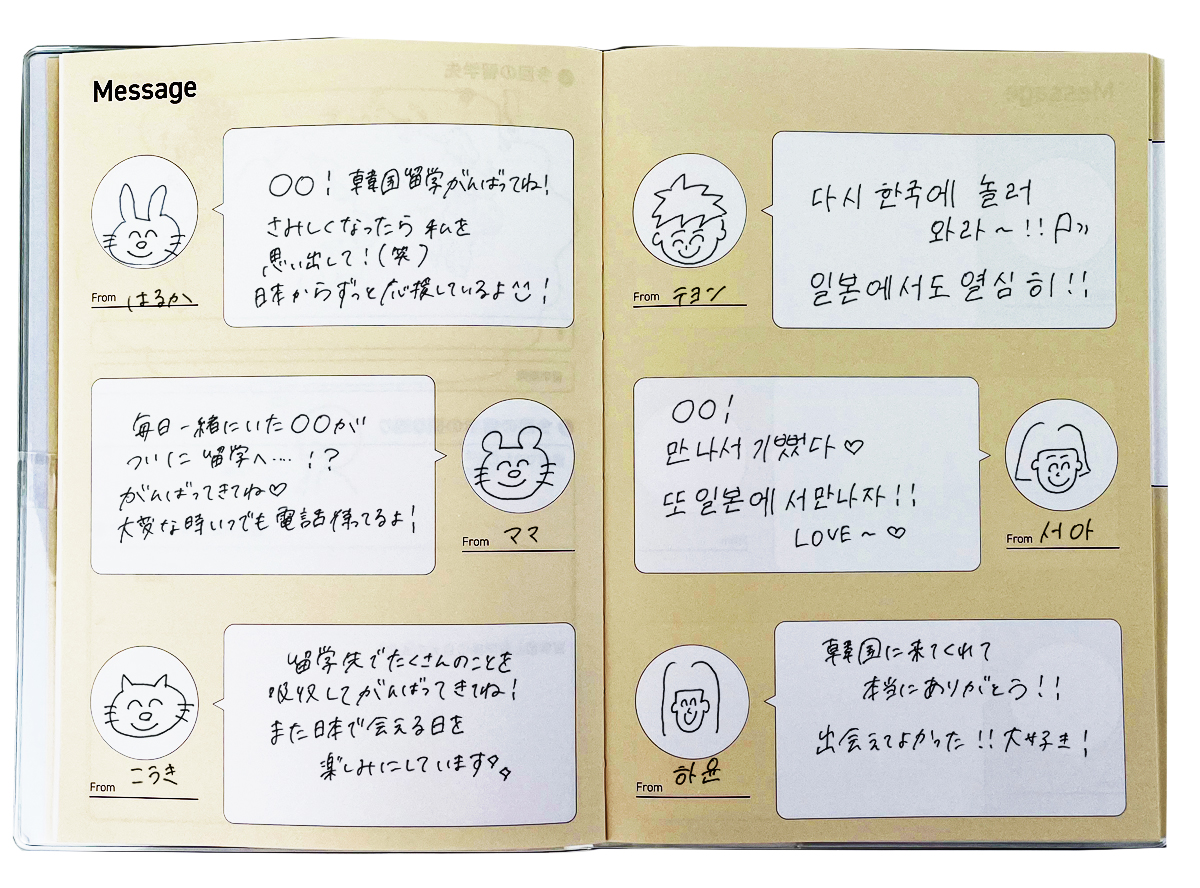 Message
○○！韓国留学がんばってね！
さみしくなったら私を
思い出して！（笑）
日本からずっと応援しているよ^^！
From はるか
毎日一緒にいた○○が
ついに留学へ....！？
がんばってきてね♡
大変な時いつでも電話待ってるよ！
From ママ
留学先でたくさんのことを
吸収してがんばってきてね！
また日本で会える日を
楽しみにしています
From こうき
다시 한국에 놀러
와라~!!
일본에서도 열심히!!
From テヨン
○○！
만나서 기뻤다♡
또 일본에서 만나자!!
LOVE~♡
From 서아
韓国に来てくれて
本当にありがとう！！
出会えてよかった！！大好き！
From 하윤